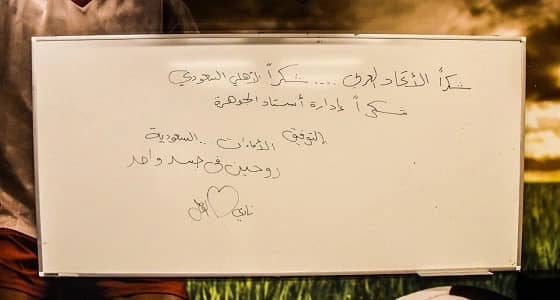 شكراً الأتحاد العربي .... شكراً الأهلي السعودي
شكراً إدارة أستاد الجوهرة
التوفيق
الأمارات .. السعودية
روحين في جسد واحد
نادي